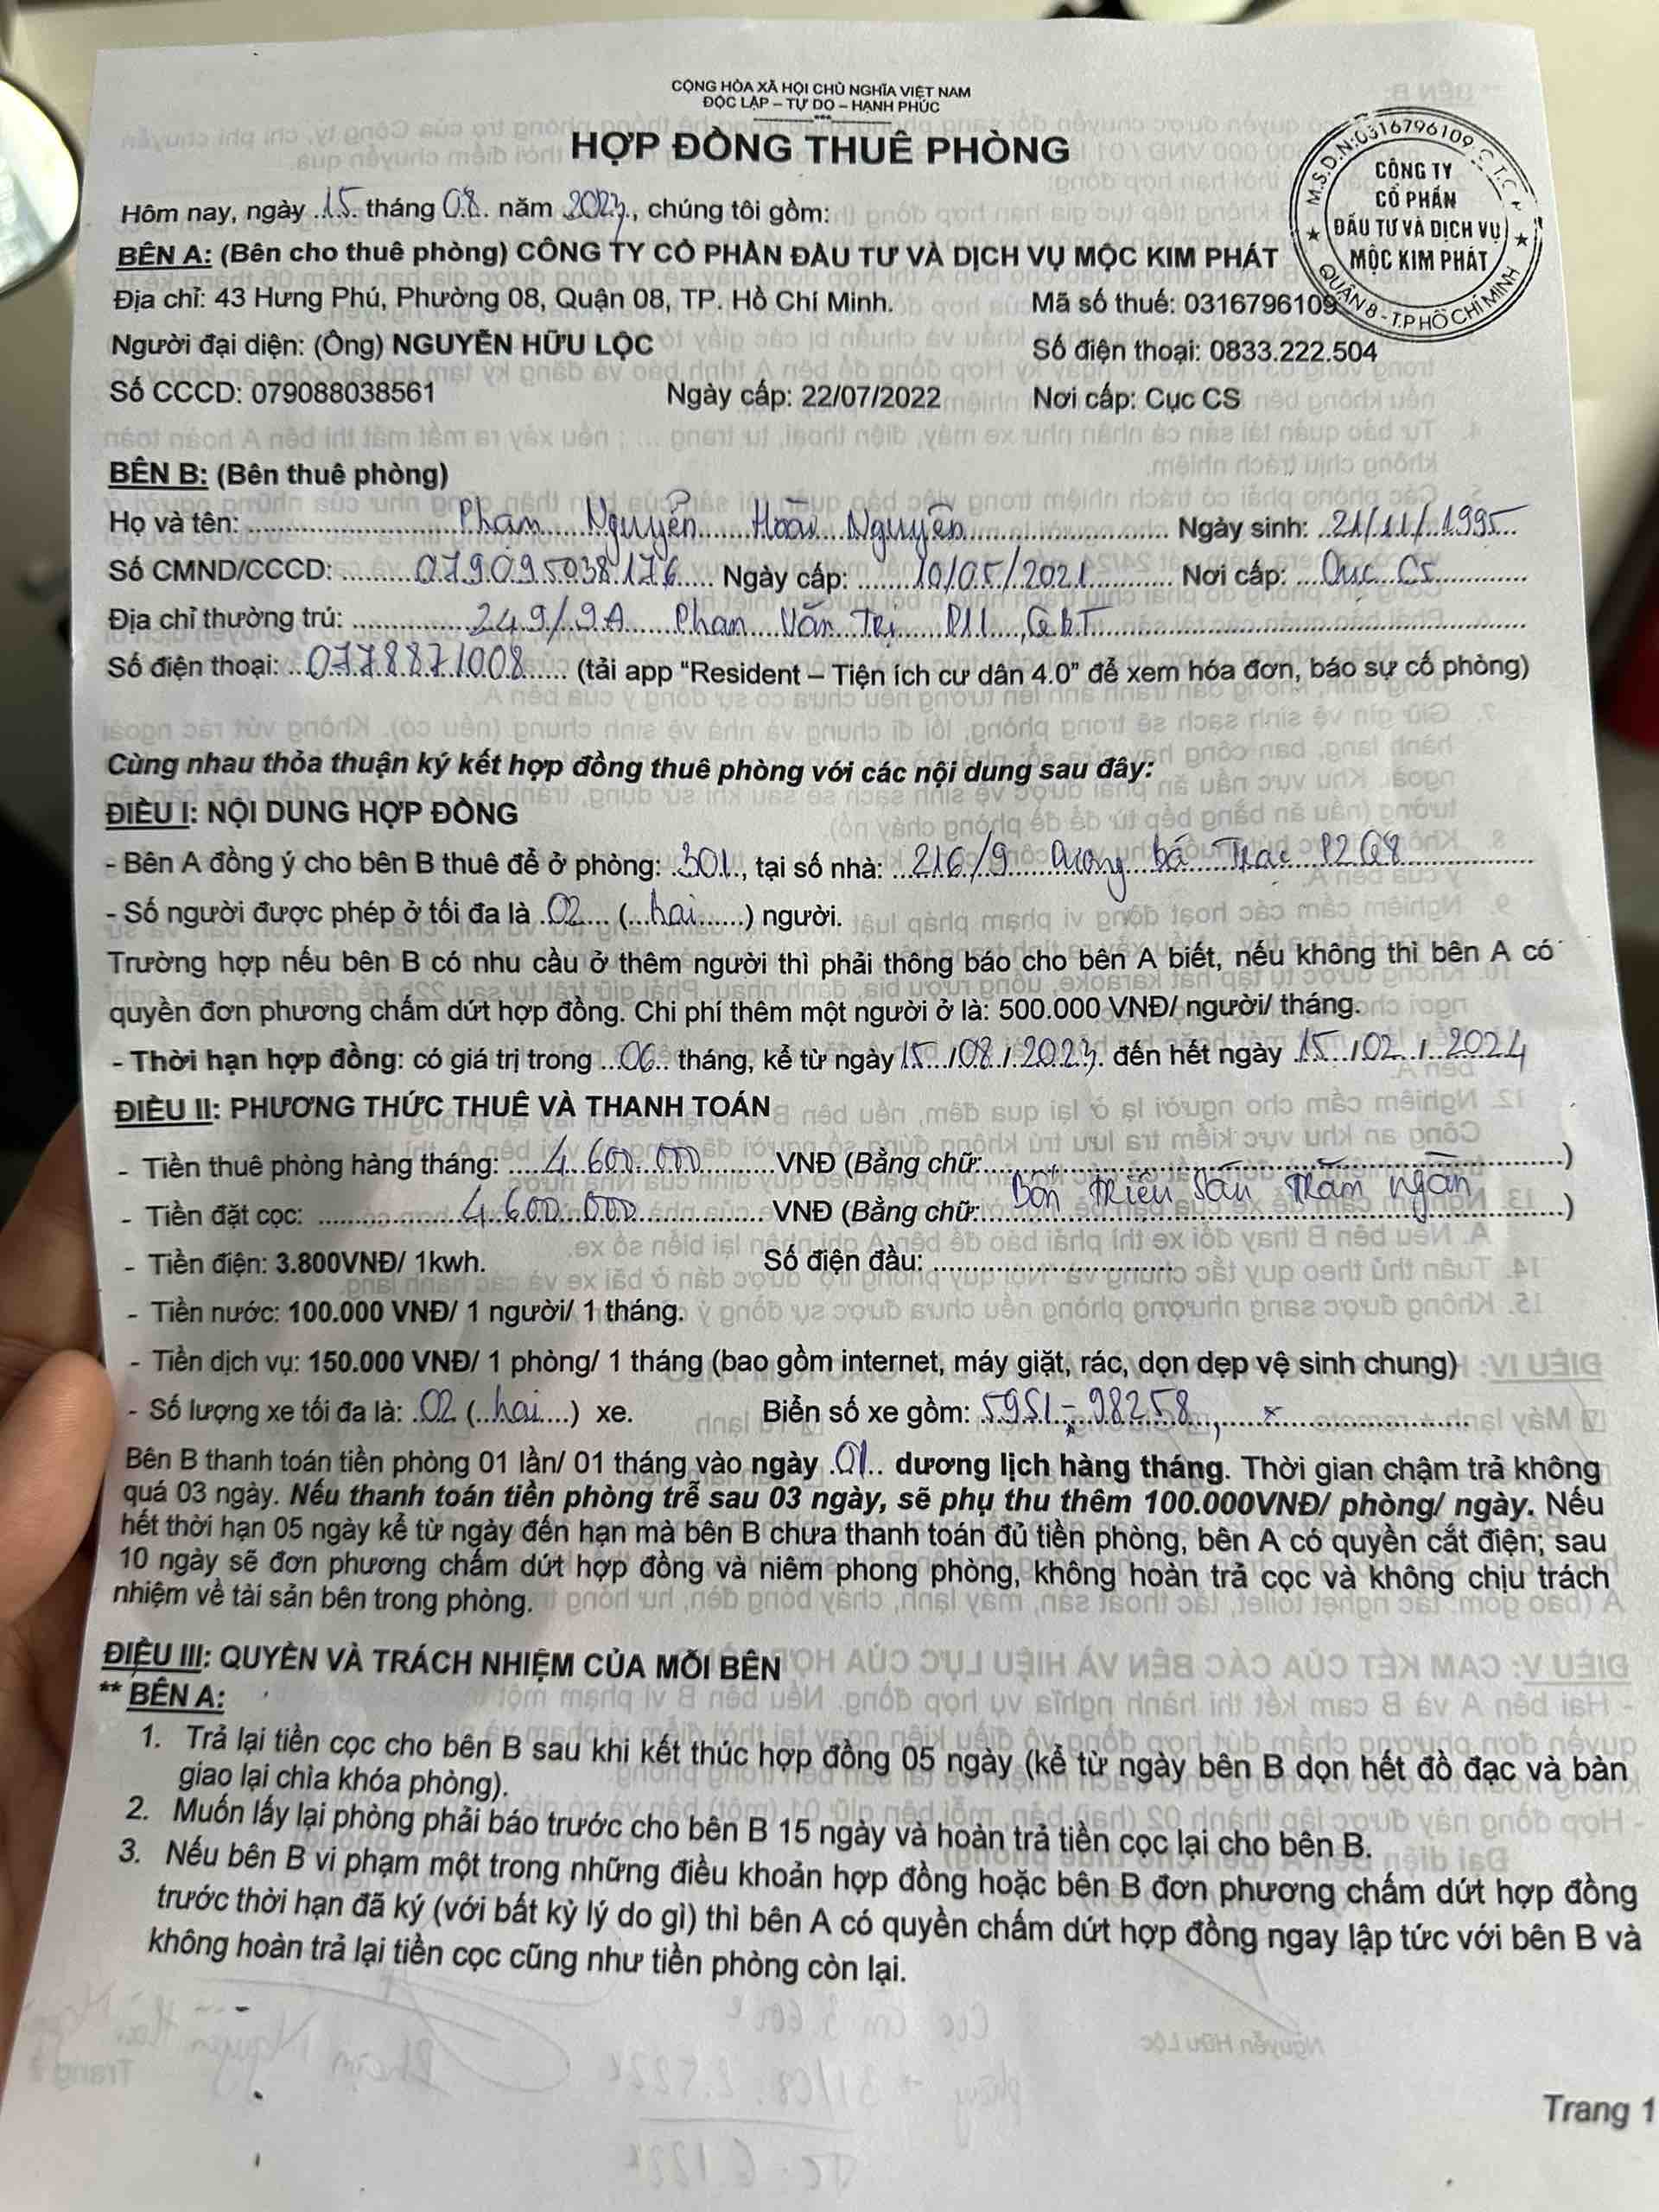 CỘNG HÒA XÃ HỘI CHỦ NGHĨA VIỆT NAM
ĐỘC LẬP – TỰ DO – HẠNH PHÚC
***
HỢP ĐỒNG THUÊ PHÒNG
M.S.D.N:0316796109-C.T.C.P
CÔNG TY
CỔ PHẦN
ĐẦU TƯ VÀ DỊCH VỤ
MỘC KIM PHÁT
QUẬN 8 - T.P HỒ CHÍ MINH
Hôm nay, ngày 15 tháng 08 năm 2023, chúng tôi gồm:
BÊN A: (Bên cho thuê phòng) CÔNG TY CỔ PHẦN ĐẦU TƯ VÀ DỊCH VỤ MỘC KIM PHÁT
Địa chỉ: 43 Hưng Phú, Phường 08, Quận 08, TP. Hồ Chí Minh. Mã số thuế: 0316796109
Người đại diện: (Ông) NGUYỄN HỮU LỘC Số điện thoại: 0833.222.504
Số CCCD: 079088038561 Ngày cấp: 22/07/2022 Nơi cấp: Cục CS
BÊN B: (Bên thuê phòng)
Họ và tên: Phạm Nguyễn Hoài Nguyên Ngày sinh: 21/11/1995
Số CMND/CCCD: 079095038176 Ngày cấp: 10/05/2021 Nơi cấp: Cục CS
Địa chỉ thường trú: 249/9A Phan Văn Trị P11, QBT
Số điện thoại: 0778871008 (tải app “Resident – Tiện ích cư dân 4.0” để xem hóa đơn, báo sự cố phòng)
Cùng nhau thỏa thuận ký kết hợp đồng thuê phòng với các nội dung sau đây:
ĐIỀU I: NỘI DUNG HỢP ĐỒNG
- Bên A đồng ý cho bên B thuê để ở phòng: 301, tại số nhà: 216/9 Dương Bá Trạc P2 Q8
- Số người được phép ở tối đa là 02 (hai) người.
Trường hợp nếu bên B có nhu cầu ở thêm người thì phải thông báo cho bên A biết, nếu không thì bên A có
quyền đơn phương chấm dứt hợp đồng. Chi phí thêm một người ở là: 500.000 VNĐ/ người/ tháng.
- Thời hạn hợp đồng: có giá trị trong 06 tháng, kể từ ngày 15/08/2023 đến hết ngày 15/02/2024
ĐIỀU II: PHƯƠNG THỨC THUÊ VÀ THANH TOÁN
- Tiền thuê phòng hàng tháng: 4.600.000 VNĐ (Bằng chữ: )
- Tiền đặt cọc: 4.600.000 VNĐ (Bằng chữ: Bốn triệu sáu trăm ngàn )
- Tiền điện: 3.800VNĐ/ 1kwh. Số điện đầu:
- Tiền nước: 100.000 VNĐ/ 1 người/ 1 tháng.
- Tiền dịch vụ: 150.000 VNĐ/ 1 phòng/ 1 tháng (bao gồm internet, máy giặt, rác, dọn dẹp vệ sinh chung)
- Số lượng xe tối đa là: 02 (hai) xe. Biển số xe gồm: 59S1-98258, x
Bên B thanh toán tiền phòng 01 lần/ 01 tháng vào ngày 01 dương lịch hàng tháng. Thời gian chậm trả không
quá 03 ngày. Nếu thanh toán tiền phòng trễ sau 03 ngày, sẽ phụ thu thêm 100.000VNĐ/ phòng/ ngày. Nếu
hết thời hạn 05 ngày kể từ ngày đến hạn mà bên B chưa thanh toán đủ tiền phòng, bên A có quyền cắt điện; sau
10 ngày sẽ đơn phương chấm dứt hợp đồng và niêm phong phòng, không hoàn trả cọc và không chịu trách
nhiệm về tài sản bên trong phòng.
ĐIỀU III: QUYỀN VÀ TRÁCH NHIỆM CỦA MỖI BÊN
** BÊN A:
1. Trả lại tiền cọc cho bên B sau khi kết thúc hợp đồng 05 ngày (kể từ ngày bên B dọn hết đồ đạc và bàn
giao lại chìa khóa phòng).
2. Muốn lấy lại phòng phải báo trước cho bên B 15 ngày và hoàn trả tiền cọc lại cho bên B.
3. Nếu bên B vi phạm một trong những điều khoản hợp đồng hoặc bên B đơn phương chấm dứt hợp đồng
trước thời hạn đã ký (với bất kỳ lý do gì) thì bên A có quyền chấm dứt hợp đồng ngay lập tức với bên B và
không hoàn trả lại tiền cọc cũng như tiền phòng còn lại.
Trang 1